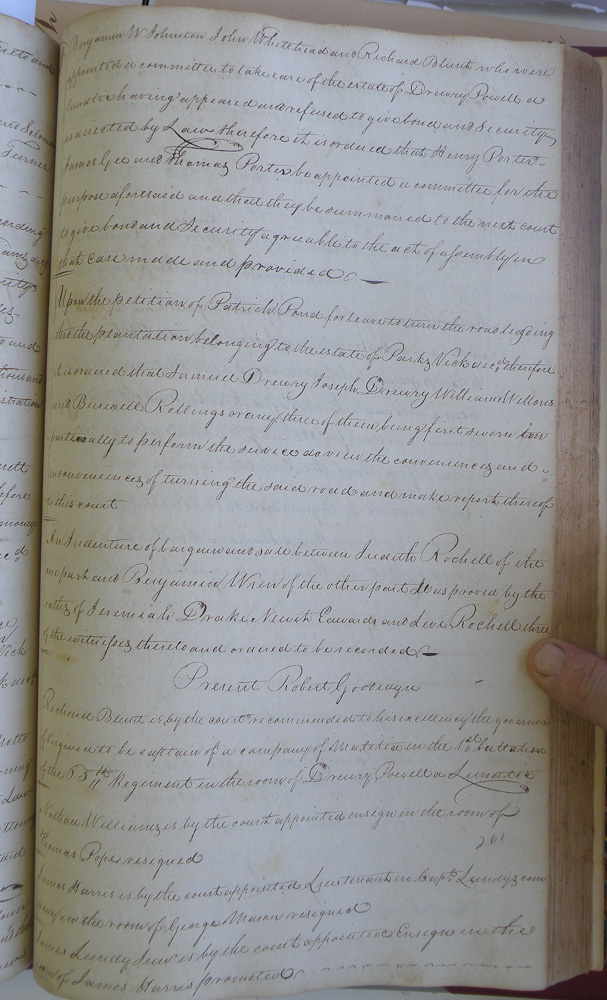 Benjamin W. Johnston John Whitehead and Richard Blunt who were
appointed a committee to take care of the estate of Drewry Powell a
lunatic having appeared and refused to give bond and Security
as directed by Law, therefore it is ordered that Henry Porter
James Gee and Thomas Porter be appointed a committee for the
purpose aforesaid and that they be summoned to the next court
to give bond and Security agreeable to the act of assembly in
that case made and provided
Upon the petition of Patrick Pond for leave to turn the road leading
thro the plantation belonging to the estate of Parks Nick decd. therefore
it is ordered that Samuel Drewry Joseph Drewry William Willons
and Benwell Rollings or any three of them being first sworn im
partially to perform the service do view the conveniences and
inconveniences of turning the said road and make report thereof
to this court
An Indenture of bargain and sale between Judith Rochell of the
one part and Benjamin Wren of the other part was proved by the
oaths of Jeremiah Drake Newit Edwards and Levi Rochell three
of the witnesses thereto and ordered to be recorded
Present Robert Goodwyn
Richard Blunt is by the court recommended to his excellency the governor
of Virginia to be captain of a company of Militia in the 1st battalion
of the Regiment in the room of Drewry Powell a Lunatic
Nathan Williams is by the court appointed ensign in the room of
Thomas Pope resigned
261
James Harris is by the court appointed Lieutenant in Capt. Lundys com
in the room of George Mason resigned
James Lundy Junr is by the court appointed Ensign in the
room of James Harris promoted